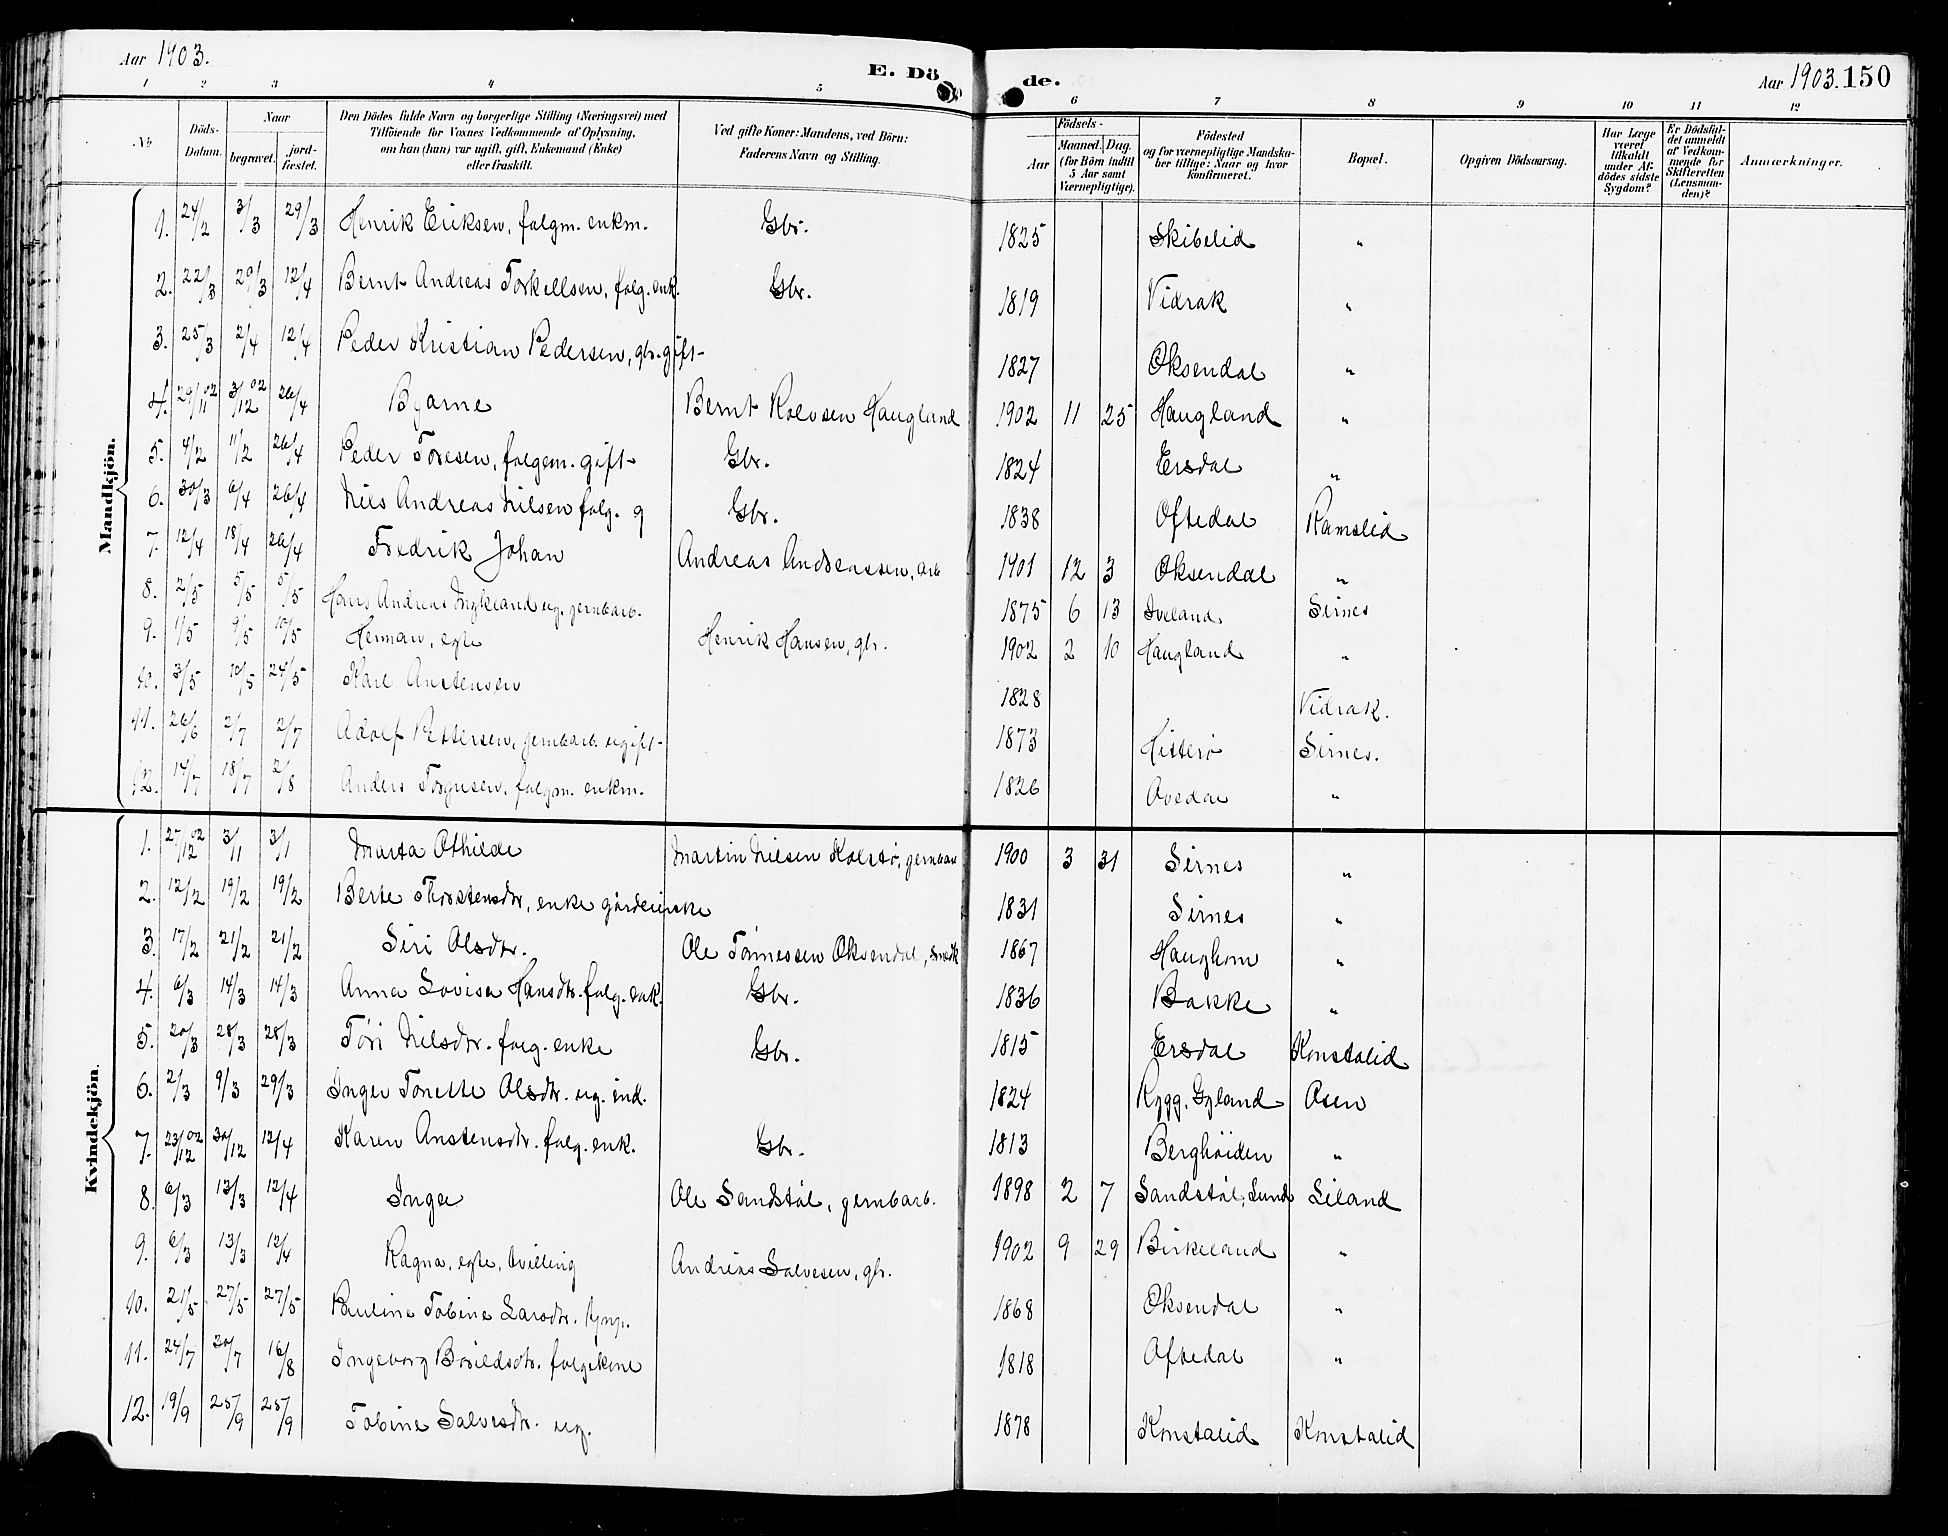 Aar 1903. E. Döde. Aar 1903. 150
1 2 3 4 5 6 7 8 9 10 11 12
No. Döds-Datum. Naar begravet. jord-fæstet. Den Dödes fulde Navn og borgerlige Stilling (Næringsvei) med Tilföiende for Voxnes Vedkommende af Oplysning, om han (hun) var ugift, gift, Enkemand (Enke) eller fraskilt. Ved gifte Koner: Mandens, ved Börn: Faderens Navn og Stilling. Födsels- Aar Maaned. Dag. (for Börn indtil 5 Aar samt Værnepligtige). Födested og for værnepligtige Mandskaber tillige: Naar og hvor Konfirmeret. Bopæl. Opgiven Dödsaarsag. Har Læge været tilkaldt under Afdödes sidste Sygdom? Er Dödsfaldet anmeldt af Vedkommende for Skifteretten (Lensmanden)? Anmærkninger.
Mandkjön.
1. 24/2 3/3 29/3 Henrik Eriksen, folgm. enkm. Gbr. 1825 Skibelid "
2. 22/3 29/3 12/4 Bernt Andreas Torkellsen, folg. enk. Gbr. 1819 Vidrak "
3. 25/3 2/4 12/4 Peder Kristian Pedersen, gbr. gift 1827 Oksendal "
4. 29/11 02 3/12 02 26/4 Bjarne Bernt Rolvsen Haugland 1902 11 25 Haugland "
5. 4/2 11/2 26/4 Peder Toresen, folgem. gift Gbr. 1824 Ersdal "
6. 30/3 6/4 26/4 Nils Andreas Nilsen folg. g Gbr. 1838 Oftedal Ramslid
7. 12/4 18/4 26/4 Fredrik Johan Andreas Andreassen, arb 1901 12 3 Oksendal "
8. 2/5 5/5 5/5 Hans Andreas ug. jernbarb. 1875 6 13 Iveland Sirnes
9. 1/5 9/5 10/5 Herman, egte Henrik Hansen, gbr. 1902 2 10 Haugland "
10. 3/5 10/5 24/5 Karl Anstensen 1828 Vidrak.
11. 26/6 2/7 2/7 Adolf Pettersen, jernbarb. ugift 1873 Hitterö Sirnes.
12. 14/7 18/7 2/8 Anders Torgusen, folgm. enkm. 1826 Avedal "
Kvindekjön.
1. 27/12 02 3/11 3/1 Marta Othilde Martin Nilsen Kolstø, jernbar 1900 3 31 Sirnes "
2. 12/2 19/2 19/2 Berte Thorstensdtr, enke 1831 Sirnes "
3. 17/2 21/2 21/2 Siri Olsdtr. Ole Tønnessen Oksendal, smed 1867 Haughom "
4. 6/3 14/3 14/3 Anna Lovisa Hansdtr. folg. enk. Gbr. 1836 Bakke "
5. 20/3 28/3 28/3 Töri Nilsdtr. folg. enke Gbr. 1815 Ersdal Konstalid
6. 2/3 9/3 29/3 Inger Tonette Olsdtr. ug. ind. 1824 Rygg, Gyland Osen
7. 23/12 02 30/12 12/4 Karen Anstensdtr. folg. enk. Gbr. 1813 Berghöiden "
8. 6/3 13/3 12/4 Inga Ole Sandstöl, jernbarb. 1898 2 7 Sandstöl, Lund Liland
9. 6/3 13/3 12/4 Ragna, egte, tvilling Andreas Salvesen, gbr. 1902 9 29 Birkeland "
10. 21/5 27/5 27/5 Pauline Tobine Larsdtr. 1868 Oksendal "
11. 24/7 30/7 16/8 Ingeborg Bøildsdtr. folgekone 1818 Oftedal "
12. 19/9 25/9 25/9 Tobine Salvesdtr. ug. 1878 Konstalid Konstalid